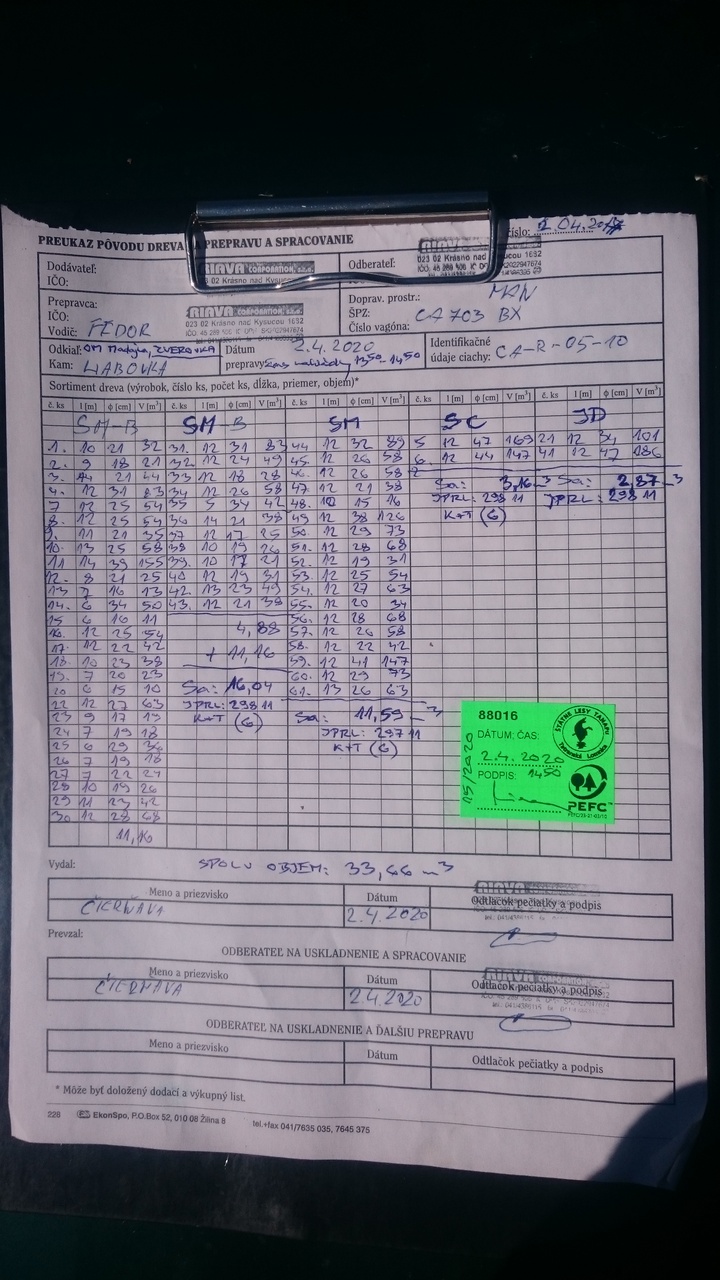 2.04.20
PREUKAZ PÔVODU DREVA PREPRAVU A SPRACOVANIE číslo:
Dodávateľ: RIAVA CORPORATION, s.r.o. Odberateľ:
IČO: 023 02 Krásno nad Kysucou 1632 023 02 Krásno nad Kysucou 1632
Prepravca: RIAVA CORPORATION, s.r.o. Doprav. prostr.: MAN
IČO: 023 02 Krásno nad Kysucou 1632 ŠPZ: CA 703 BX
Vodič: FEDOR Číslo vagóna:
Odkiaľ: ZVEROVKA Dátum 2.4.2020 Identifikačné
Kam: prepravy: 13 50 - 14 50 údaje ciachy: CA-R-05-10
Sortiment dreva (výrobok, číslo ks, počet ks, dĺžka, priemer, objem)*
č. ks l [m] ϕ [cm] V [m³] č. ks l [m] ϕ [cm] V [m³] č. ks l [m] ϕ [cm] V [m³] č. ks l [m] ϕ [cm] V [m³] č. ks l [m] ϕ [cm] V [m³]
SM-B SM-B SM SC JD
1. 10 21 32 31. 12 31 83 44 12 32 89 5 12 47 169 21 12 101
2. 9 18 21 32 12 24 49 45. 12 26 58 6. 12 44 147 41 12 47 186
3. 21 44 33 12 18 28 46. 12 26 58
Sa: 3,16 m3 Sa: 2,87 m3
4. 12 31 83 34 12 26 58 47 12 21 38 JPRL: 298 11 JPRL: 298 11
7 12 25 54 35 5 34 42 48. 10 15 16 K+T (6)
8. 12 25 54 36 14 21 38 49 12 38 126
9. 11 21 35 37 12 17 25 50. 12 29 73
10. 13 25 58 38 10 19 26 51. 12 28 68
11 14 39 155 39. 10 17 21 52. 12 19 31
12. 8 21 25 40 12 19 31 53. 12 25 54
13 7 16 13 42. 13 23 49 54. 12 27 63
14. 6 34 50 43. 12 21 38 55. 12 20 34
15 6 16 11 56. 12 28 68
16. 12 25 54 4,88 57. 12 26 58
17. 12 22 42 + 11,16 58. 12 22 42
18. 10 23 38 59. 12 41 147
19. 7 20 23 60. 12 29 73
20 6 15 10 Sa: 16,04 61. 13 26 63
22 12 27 63 JPRL: 298 11
23 9 17 19 K+T (6) Sa: 11,59 m3
24 7 19 18 JPRL: 297 11
25 6 29 36 K+T (6)
26 7 19 18
27 7 22 24
28 10 19 26
29 11 23 42
30 12 28 68
11,16
88016
DÁTUM: ČAS:
2.4.2020
PODPIS: 14 50
15/2020
ŠTÁTNE LESY TANAPU
Tatranská Lomnica
PEFC™
Vydal: SPOLU OBJEM: 33,66 m3
Meno a priezvisko Dátum Odtlačok pečiatky a podpis
ČIERŇAVA 2.4.2020
Prevzal:
ODBERATEĽ NA USKLADNENIE A SPRACOVANIE
Meno a priezvisko Dátum Odtlačok pečiatky a podpis
ČIERŇAVA 2.4.2020
ODBERATEĽ NA USKLADNENIE A ĎALŠIU PREPRAVU
Meno a priezvisko Dátum Odtlačok pečiatky a podpis
* Môže byť doložený dodací a výkupný list.
228 EkonSpo, P.O.Box 52, 010 08 Žilina 8 tel.+fax 041/7635 035, 7645 375